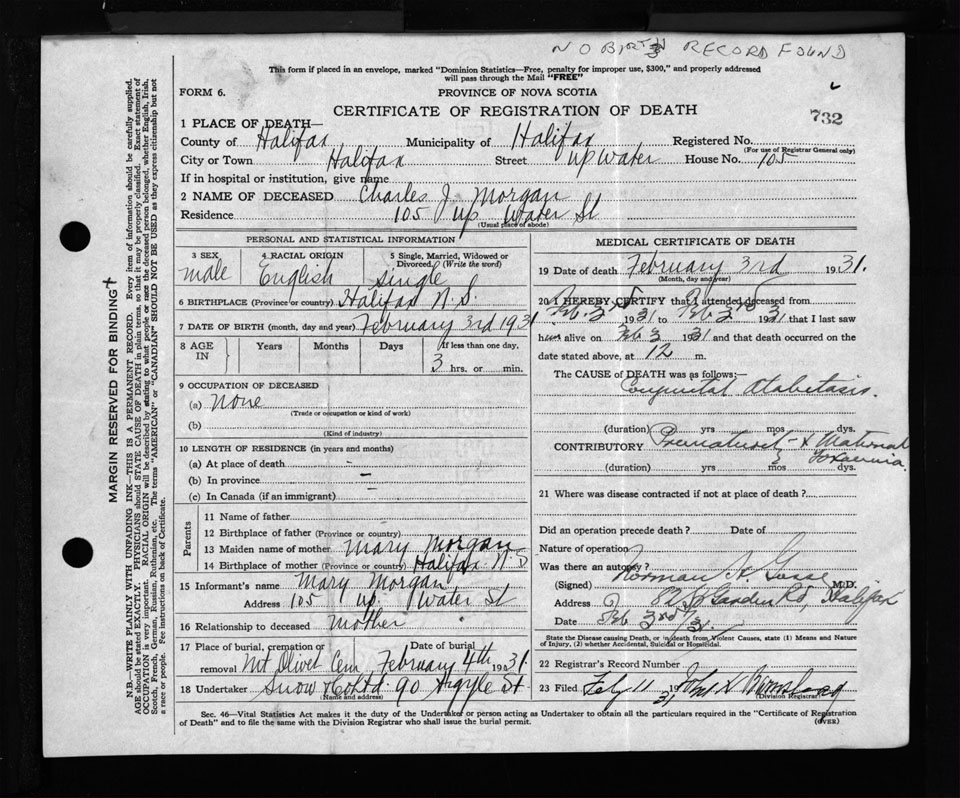 NO BIRTH RECORD FOUND
This form if placed in an envelope, marked "Dominion Statistics—Free, penalty for improper use, $300," and properly addressed
will pass through the Mail "FREE"
FORM 6. PROVINCE OF NOVA SCOTIA
CERTIFICATE OF REGISTRATION OF DEATH
732
1 PLACE OF DEATH—
County of Halifax Municipality of Halifax Registered No.
(For use of Registrar General only)
City or Town Halifax Street up Water House No. 105
If in hospital or institution, give name
2 NAME OF DECEASED Charles J. Morgan
Residence 105 up Water St
(Usual place of abode)
PERSONAL AND STATISTICAL INFORMATION
3 SEX 4 RACIAL ORIGIN 5 Single, Married, Widowed or
Divorced. (Write the word)
male English single
6 BIRTHPLACE (Province or country) Halifax N.S.
7 DATE OF BIRTH (month, day and year) February 3rd 1931
8 AGE IN Years Months Days If less than one day,
3 hrs. or min.
9 OCCUPATION OF DECEASED
(a) None
(Trade or occupation or kind of work)
(b)
(Kind of industry)
10 LENGTH OF RESIDENCE (in years and months)
(a) At place of death -
(b) In province -
(c) In Canada (if an immigrant) -
Parents
11 Name of father
12 Birthplace of father (Province or country)
13 Maiden name of mother Mary Morgan
14 Birthplace of mother (Province or country) Halifax N.S
15 Informant's name Mary Morgan
Address 105 up Water St
16 Relationship to deceased mother
17 Place of burial, cremation or Date of burial
removal Mt Olivet Cem February 4th 1931.
18 Undertaker Snow & Co Ltd 90 Argyle St
(Name and address)
MEDICAL CERTIFICATE OF DEATH
19 Date of death February 3rd 1931.
(Month, day and year)
20 I HEREBY CERTIFY that I attended deceased from
Feb. 3rd 1931 to Feb 3rd 1931 that I last saw
him alive on Feb 3 1931 and that death occurred on the
date stated above, at 12 m.
The CAUSE of DEATH was as follows:—
Congenital Atalectasis.
(duration) yrs mos dys.
CONTRIBUTORY Prematurity & Maternal
Toxaemia.
(duration) yrs mos dys.
21 Where was disease contracted if not at place of death?
Did an operation precede death? Date of
Nature of operation
Was there an autopsy?
(Signed) Norman H. Gosse M.D.
Address Garden Rd, Halifax
Date Feb 3rd/31.
State the Disease causing Death, or in death from Violent Causes, state (1) Means and Nature
of Injury, (2) whether Accidental, Suicidal or Homicidal.
22 Registrar's Record Number
23 Filed Feby 11 1931
Division Registrar
Sec. 46—Vital Statistics Act makes it the duty of the Undertaker or person acting as Undertaker to obtain all the particulars required in the "Certificate of Registration
of Death" and to file the same with the Division Registrar who shall issue the burial permit.
(OVER)
MARGIN RESERVED FOR BINDING
N.B.—WRITE PLAINLY WITH UNFADING INK—THIS IS A PERMANENT RECORD. Every item of information should be carefully supplied.
AGE should be stated EXACTLY. PHYSICIANS should STATE CAUSE OF DEATH in plain terms, so that it may be properly classified. Exact statement of
OCCUPATION is very important. RACIAL ORIGIN will be described by stating to what people or race the deceased person belonged, whether English, Irish,
Scotch, French, German, Russian, Ruthenian, etc. The terms "AMERICAN" or "CANADIAN" SHOULD NOT BE USED as they express citizenship but not
a race or people. Fee instructions on back of Certificate.